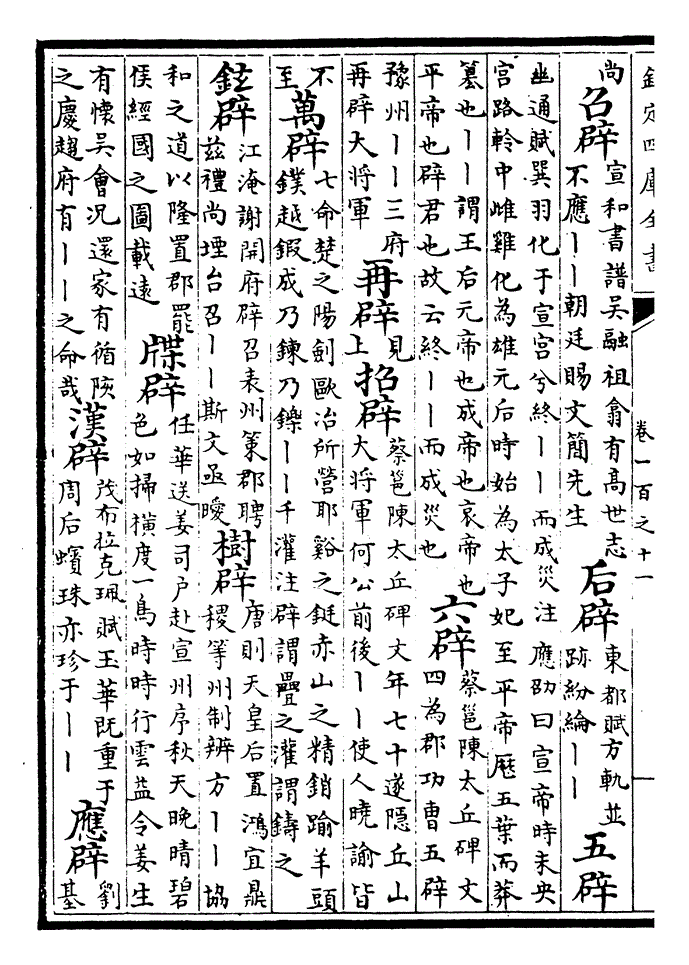 欽定四庫全書 卷一百之十一
尚
召辟
宣和書譜吳融祖翕有髙世志
不應丨丨朝廷賜文簡先生
后辟
東都賦方軌並
跡紛綸丨丨
五辟
幽通賦巽羽化于宣宫兮終丨丨而成災注應劭曰宣帝時未央
宫路軨中雌雞化為雄元后時始為太子妃至平帝厯五葉而莽
簒也丨丨謂王后元帝也成帝也哀帝也
平帝也辟君也故云終丨丨而成災也
六辟
蔡邕陳太丘碑文
四為郡功曹五辟
豫州丨丨三府
再辟大將軍
再辟
見
上
招辟
蔡邕陳太丘碑文年七十遂隠丘山
大將軍何公前後丨丨使人曉諭皆
不
至
萬辟
七命楚之陽劍歐冶所營耶谿之鋌赤山之精銷踰羊頭
鏷越鍛成乃鍊乃鑠丨丨千灌注辟謂疊之灌謂鑄之
鉉辟
江淹謝開府辟召表州策郡聘
兹禮尚堙台召丨丨斯文亟曖
樹辟
唐則天皇后置鴻宜鼎
稷等州制辨方丨丨協
和之道以隆置郡罷
侯經國之圖載遠
牒辟
任華送姜司户赴宣州序秋天晚晴碧
色如掃横度一鳥時時行雲益令姜生
有懷吳會況還家有循陔
之慶趨府有丨丨之命哉
漢辟
茂布拉克珮賦玉華既重于
周后蠙珠亦珍于丨丨
應辟
劉
基